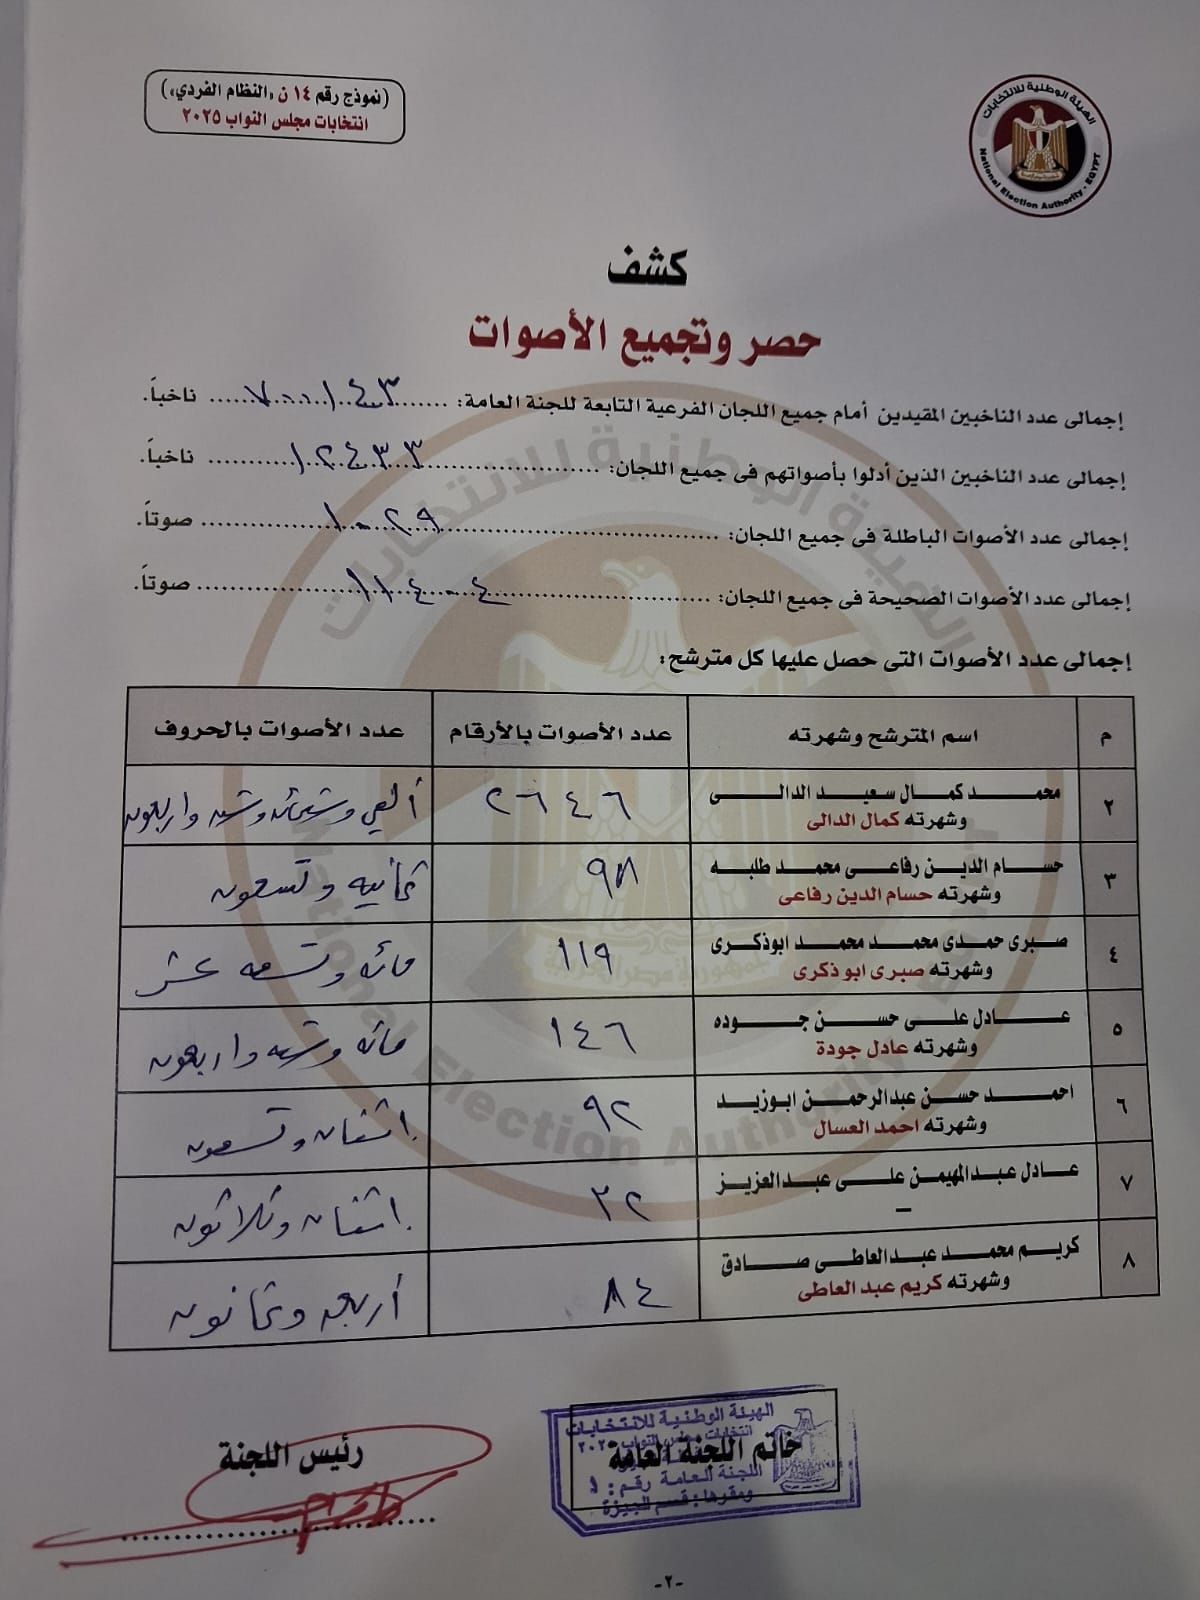 (نموذج رقم ١٤ ن «النظام الفردي»)
انتخابات مجلس النواب ٢٠٢٥
الهيئة الوطنية للانتخابات
National Election Authority - EGYPT
كشف
حصر وتجميع الأصوات
إجمالى عدد الناخبين المقيدين أمام جميع اللجان الفرعية التابعة للجنة العامة: ناخباً.
إجمالى عدد الناخبين الذين أدلوا بأصواتهم فى جميع اللجان: ١٢٤٣٣ ناخباً.
إجمالى عدد الأصوات الباطلة فى جميع اللجان: ١٠٢٩ صوتاً.
إجمالى عدد الأصوات الصحيحة فى جميع اللجان: ١١٤٠٤ صوتاً.
إجمالى عدد الأصوات التى حصل عليها كل مترشح:
م اسم المترشح وشهرته عدد الأصوات بالأرقام عدد الأصوات بالحروف
٢ محمد كمال سعيد الدالى ٢٦٤٦ ألفي وستمائه وسته واربعون
وشهرته كمال الدالى
٣ حسام الدين رفاعى محمد طلبه ٩٨ ثمانيه وتسعون
وشهرته حسام الدين رفاعى
٤ صبرى حمدى محمد محمد ابوذكرى ١١٩ مائه وتسعه عشر
وشهرته صبرى ابو ذكرى
٥ عادل على حسن جوده ١٤٦ مائه وسته واربعون
وشهرته عادل جودة
٦ احمد حسن عبدالرحمن ابوزيد ٩٢ اثنان وتسعون
وشهرته احمد العسال
٧ عادل عبدالمهيمن على عبدالعزيز ٣٢ اثنان وثلاثون
–
٨ كريم محمد عبدالعاطى صادق ٨٤ أربعه وثمانون
وشهرته كريم عبد العاطى
خاتم اللجنة العامة
الهيئة الوطنية للانتخابات
انتخابات مجلس النواب ٢٠٢٥
اللجنة العامة رقم: ١
ومقرها: قسم الجيزة
رئيس اللجنة
-٢-